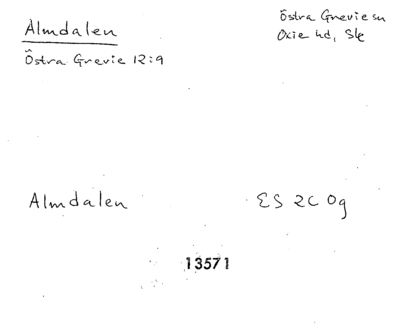 Almdalen
Östra Grevie sn
Oxie hd, Sk
Östra Grevie 12:9
Almdalen
ES 2C 0g
13571